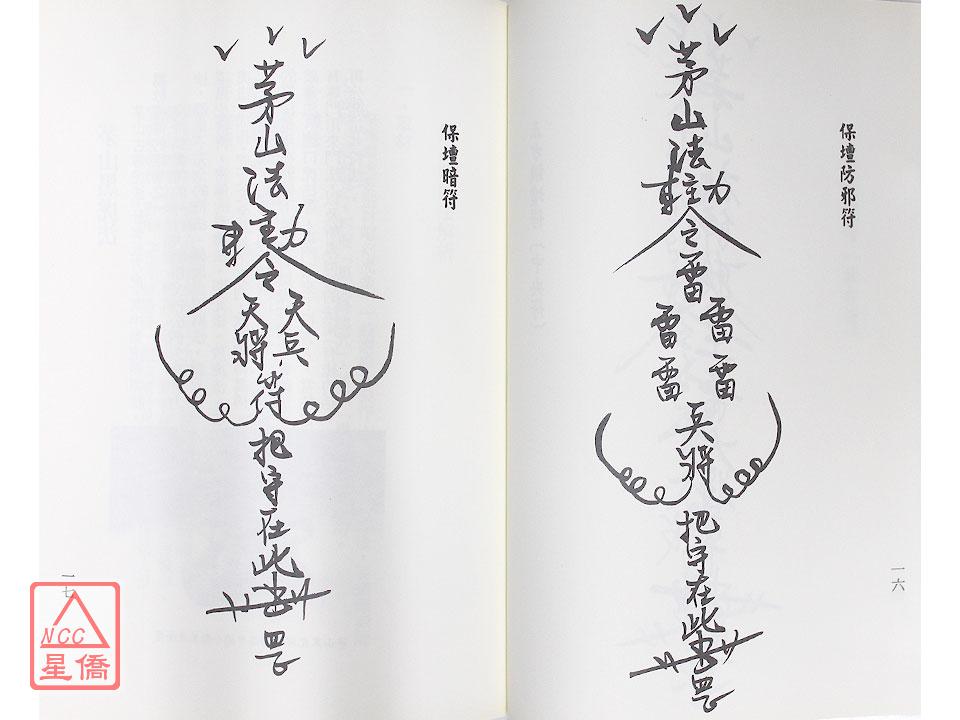 保壇防邪符
茅山法主
敕令
雷
雷雷
雷雷
兵將
把守在此
罡
一六
保壇暗符
茅山法主
敕令
天兵
天將
符
把守在此
罡
一七
NCC
星僑